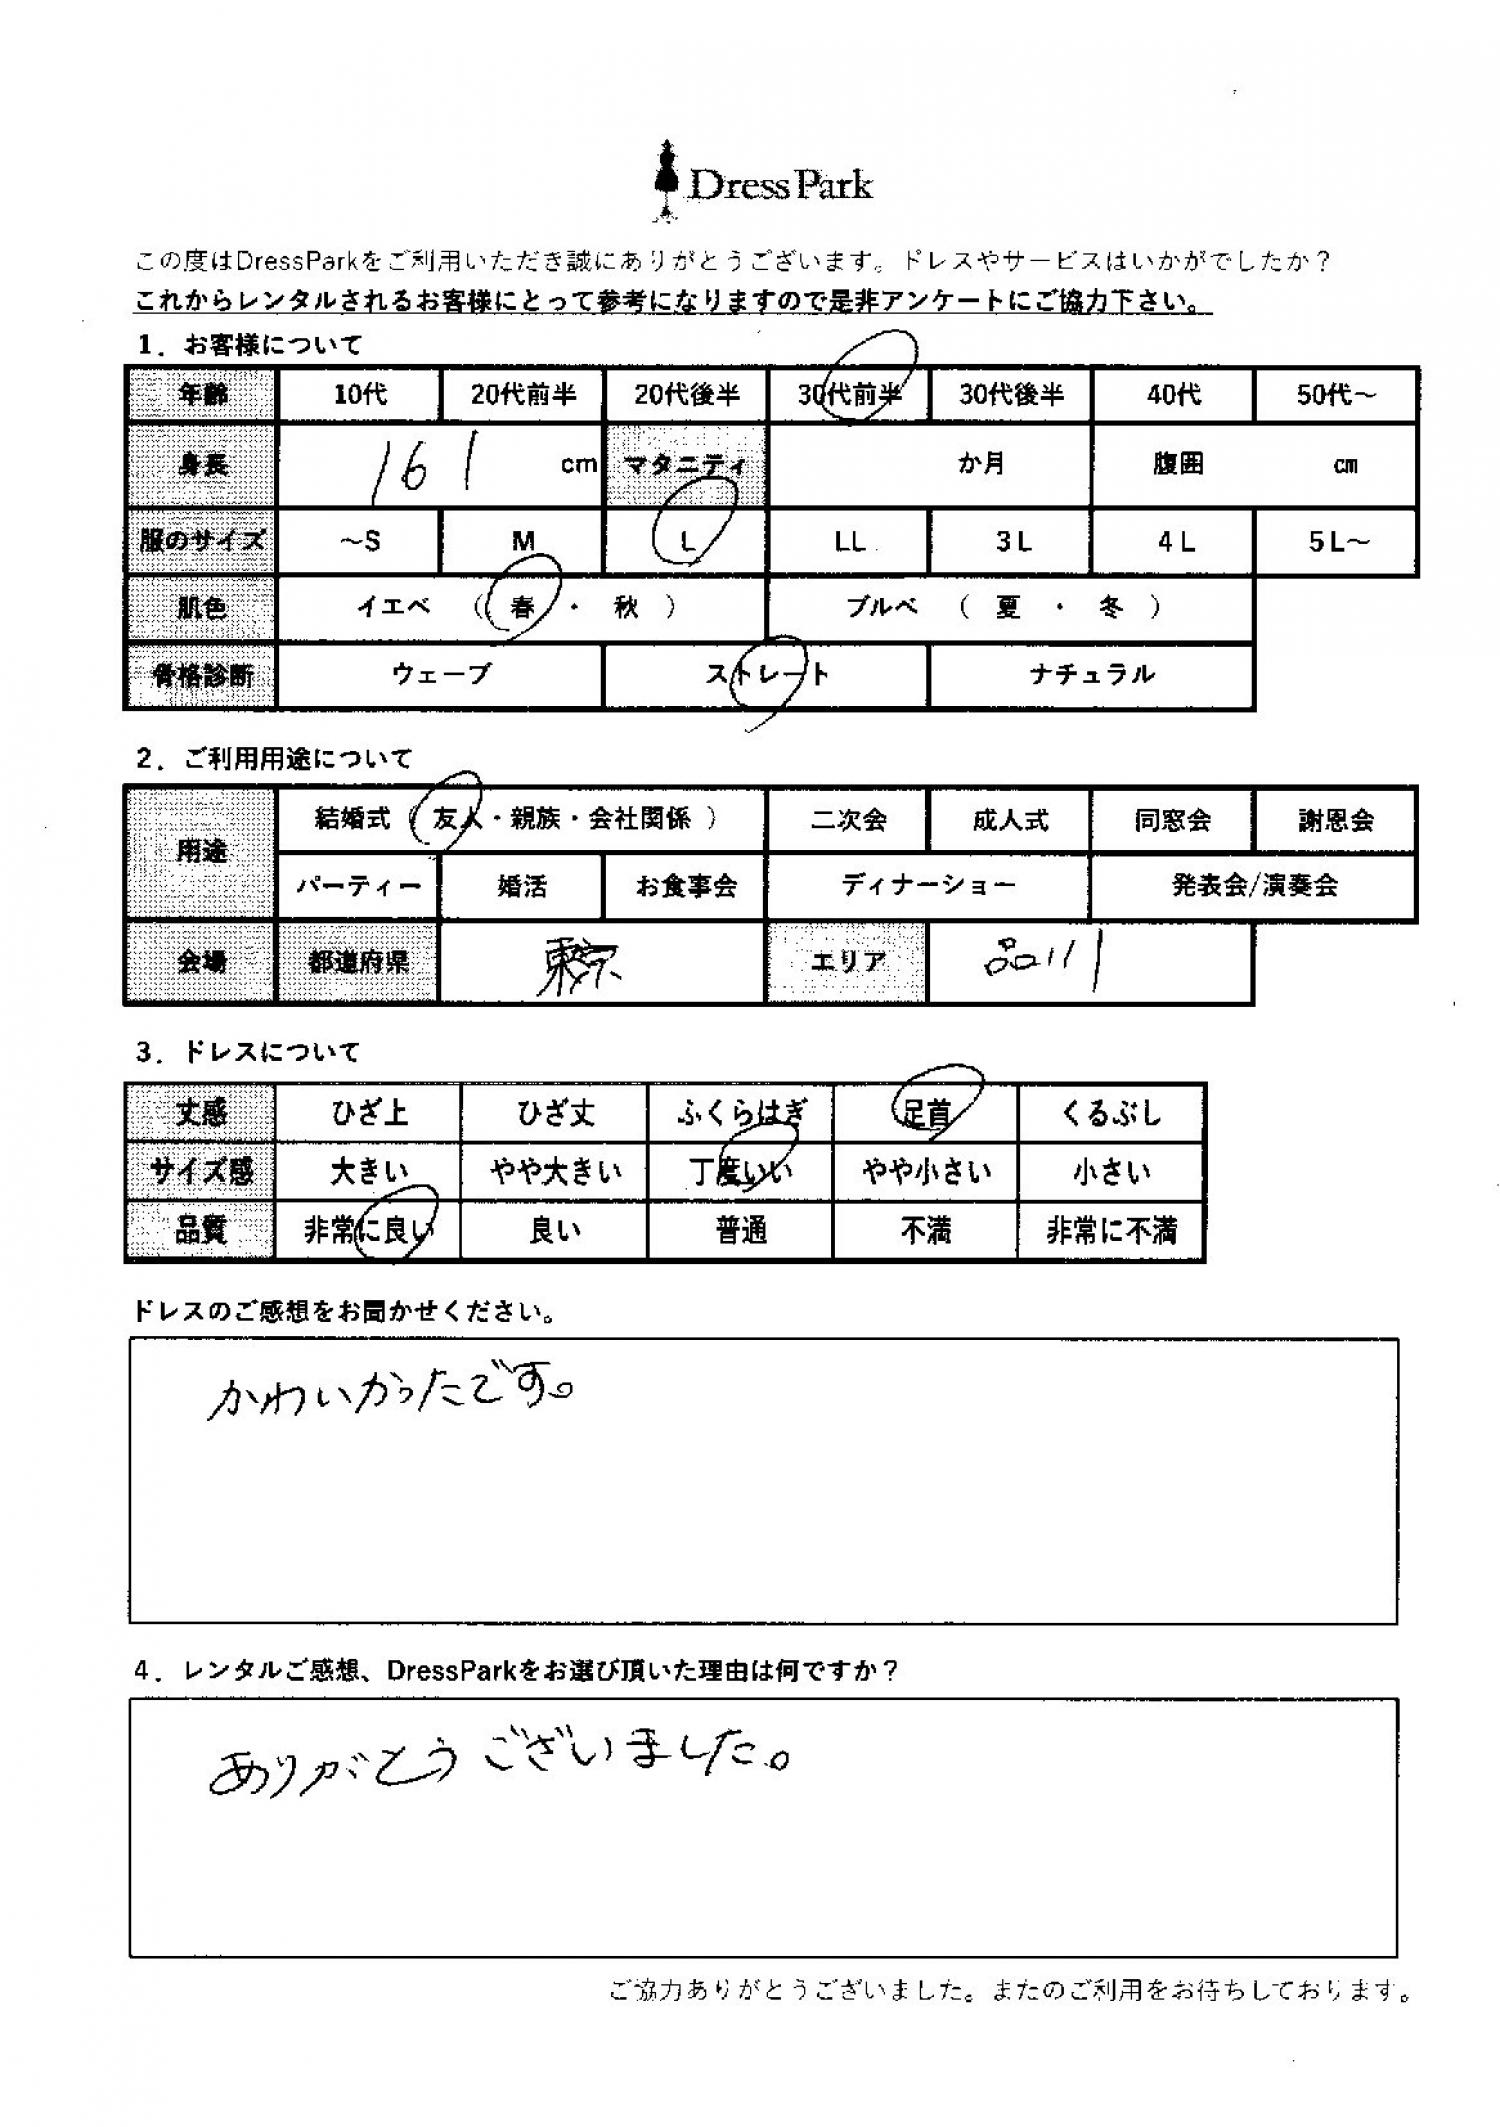 Dress Park
この度はDressParkをご利用いただき誠にありがとうございます。ドレスやサービスはいかがでしたか？
これからレンタルされるお客様にとって参考になりますので是非アンケートにご協力下さい。
1．お客様について
年齢 10代 20代前半 20代後半 30代前半 30代後半 40代 50代～
身長 161 cm マタニティ か月 腹囲 cm
服のサイズ ～S M L LL 3L 4L 5L～
肌色 イエベ （ 春 ・ 秋 ） ブルベ （ 夏 ・ 冬 ）
骨格診断 ウェーブ ストレート ナチュラル
2．ご利用用途について
用途 結婚式（ 友人・親族・会社関係 ） 二次会 成人式 同窓会 謝恩会
パーティー 婚活 お食事会 ディナーショー 発表会/演奏会
会場 都道府県 東京 エリア 品川
3．ドレスについて
丈感 ひざ上 ひざ丈 ふくらはぎ 足首 くるぶし
サイズ感 大きい やや大きい 丁度いい やや小さい 小さい
品質 非常に良い 良い 普通 不満 非常に不満
ドレスのご感想をお聞かせください。
かわいかったです。
4．レンタルご感想、DressParkをお選び頂いた理由は何ですか？
ありがとうございました。
ご協力ありがとうございました。またのご利用をお待ちしております。